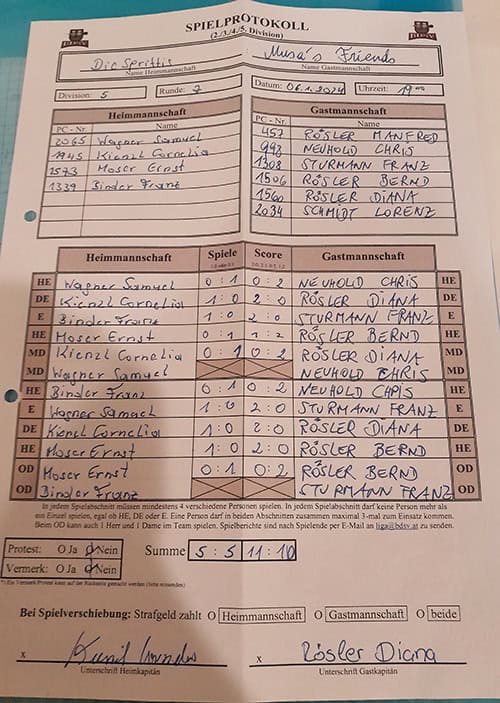 SPIELPROTOKOLL
(2./3./4./5. Division)
Die Sprittis
Name Heimmannschaft
Musa's Friends
Name Gastmannschaft
Division: 5 Runde: 7 Datum: 06.1.2024 Uhrzeit: 19⁰⁰
Heimmannschaft
PC - Nr. Name
2065 Wagner Samuel
1945 Kienzl Cornelia
1573 Moser Ernst
1339 Binder Franz
Gastmannschaft
PC - Nr. Name
457 RÖSLER MANFRED
993 NEUHOLD CHRIS
1308 STURMANN FRANZ
1506 RÖSLER BERND
1560 RÖSLER DIANA
2034 SCHMIDT LORENZ
Heimmannschaft Spiele Score Gastmannschaft
HE Wagner Samuel 0 : 1 0 : 2 NEUHOLD CHRIS HE
DE Kienzl Cornelia 1 : 0 2 : 0 RÖSLER DIANA DE
E Binder Franz 1 : 0 2 : 0 STURMANN FRANZ E
HE Moser Ernst 0 : 1 1 : 2 RÖSLER BERND HE
MD Kienzl Cornelia 0 : 1 0 : 2 RÖSLER DIANA MD
MD Wagner Samuel NEUHOLD CHRIS MD
HE Binder Franz 0 : 1 0 : 2 NEUHOLD CHRIS HE
E Wagner Samuel 1 : 0 2 : 0 STURMANN FRANZ E
DE Kienzl Cornelia 1 : 0 2 : 0 RÖSLER DIANA DE
HE Moser Ernst 1 : 0 2 : 0 RÖSLER BERND HE
OD Moser Ernst 0 : 1 0 : 2 RÖSLER BERND OD
OD Binder Franz STURMANN FRANZ OD
In jedem Spielabschnitt müssen mindestens 4 verschiedene Personen spielen. In jedem Spielabschnitt darf keine Person mehr als
ein Einzel spielen, egal ob HE, DE oder E. Eine Person darf in beiden Abschnitten zusammen maximal 3-mal zum Einsatz kommen.
Beim OD kann auch 1 Herr und 1 Dame im Team spielen. Spielberichte sind nach Spielende per E-Mail an liga@bdsv.at zu senden.
Protest: O Ja O Nein Summe 5 : 5 11 : 10
Vermerk: O Ja O Nein
*) Ein Vermerk/Protest kann auf der Rückseite gemacht werden (bitte ankreuzen)
Bei Spielverschiebung: Strafgeld zahlt O Heimmannschaft O Gastmannschaft O beide
x x Rösler Diana
Unterschrift Heimkapitän Unterschrift Gastkapitän